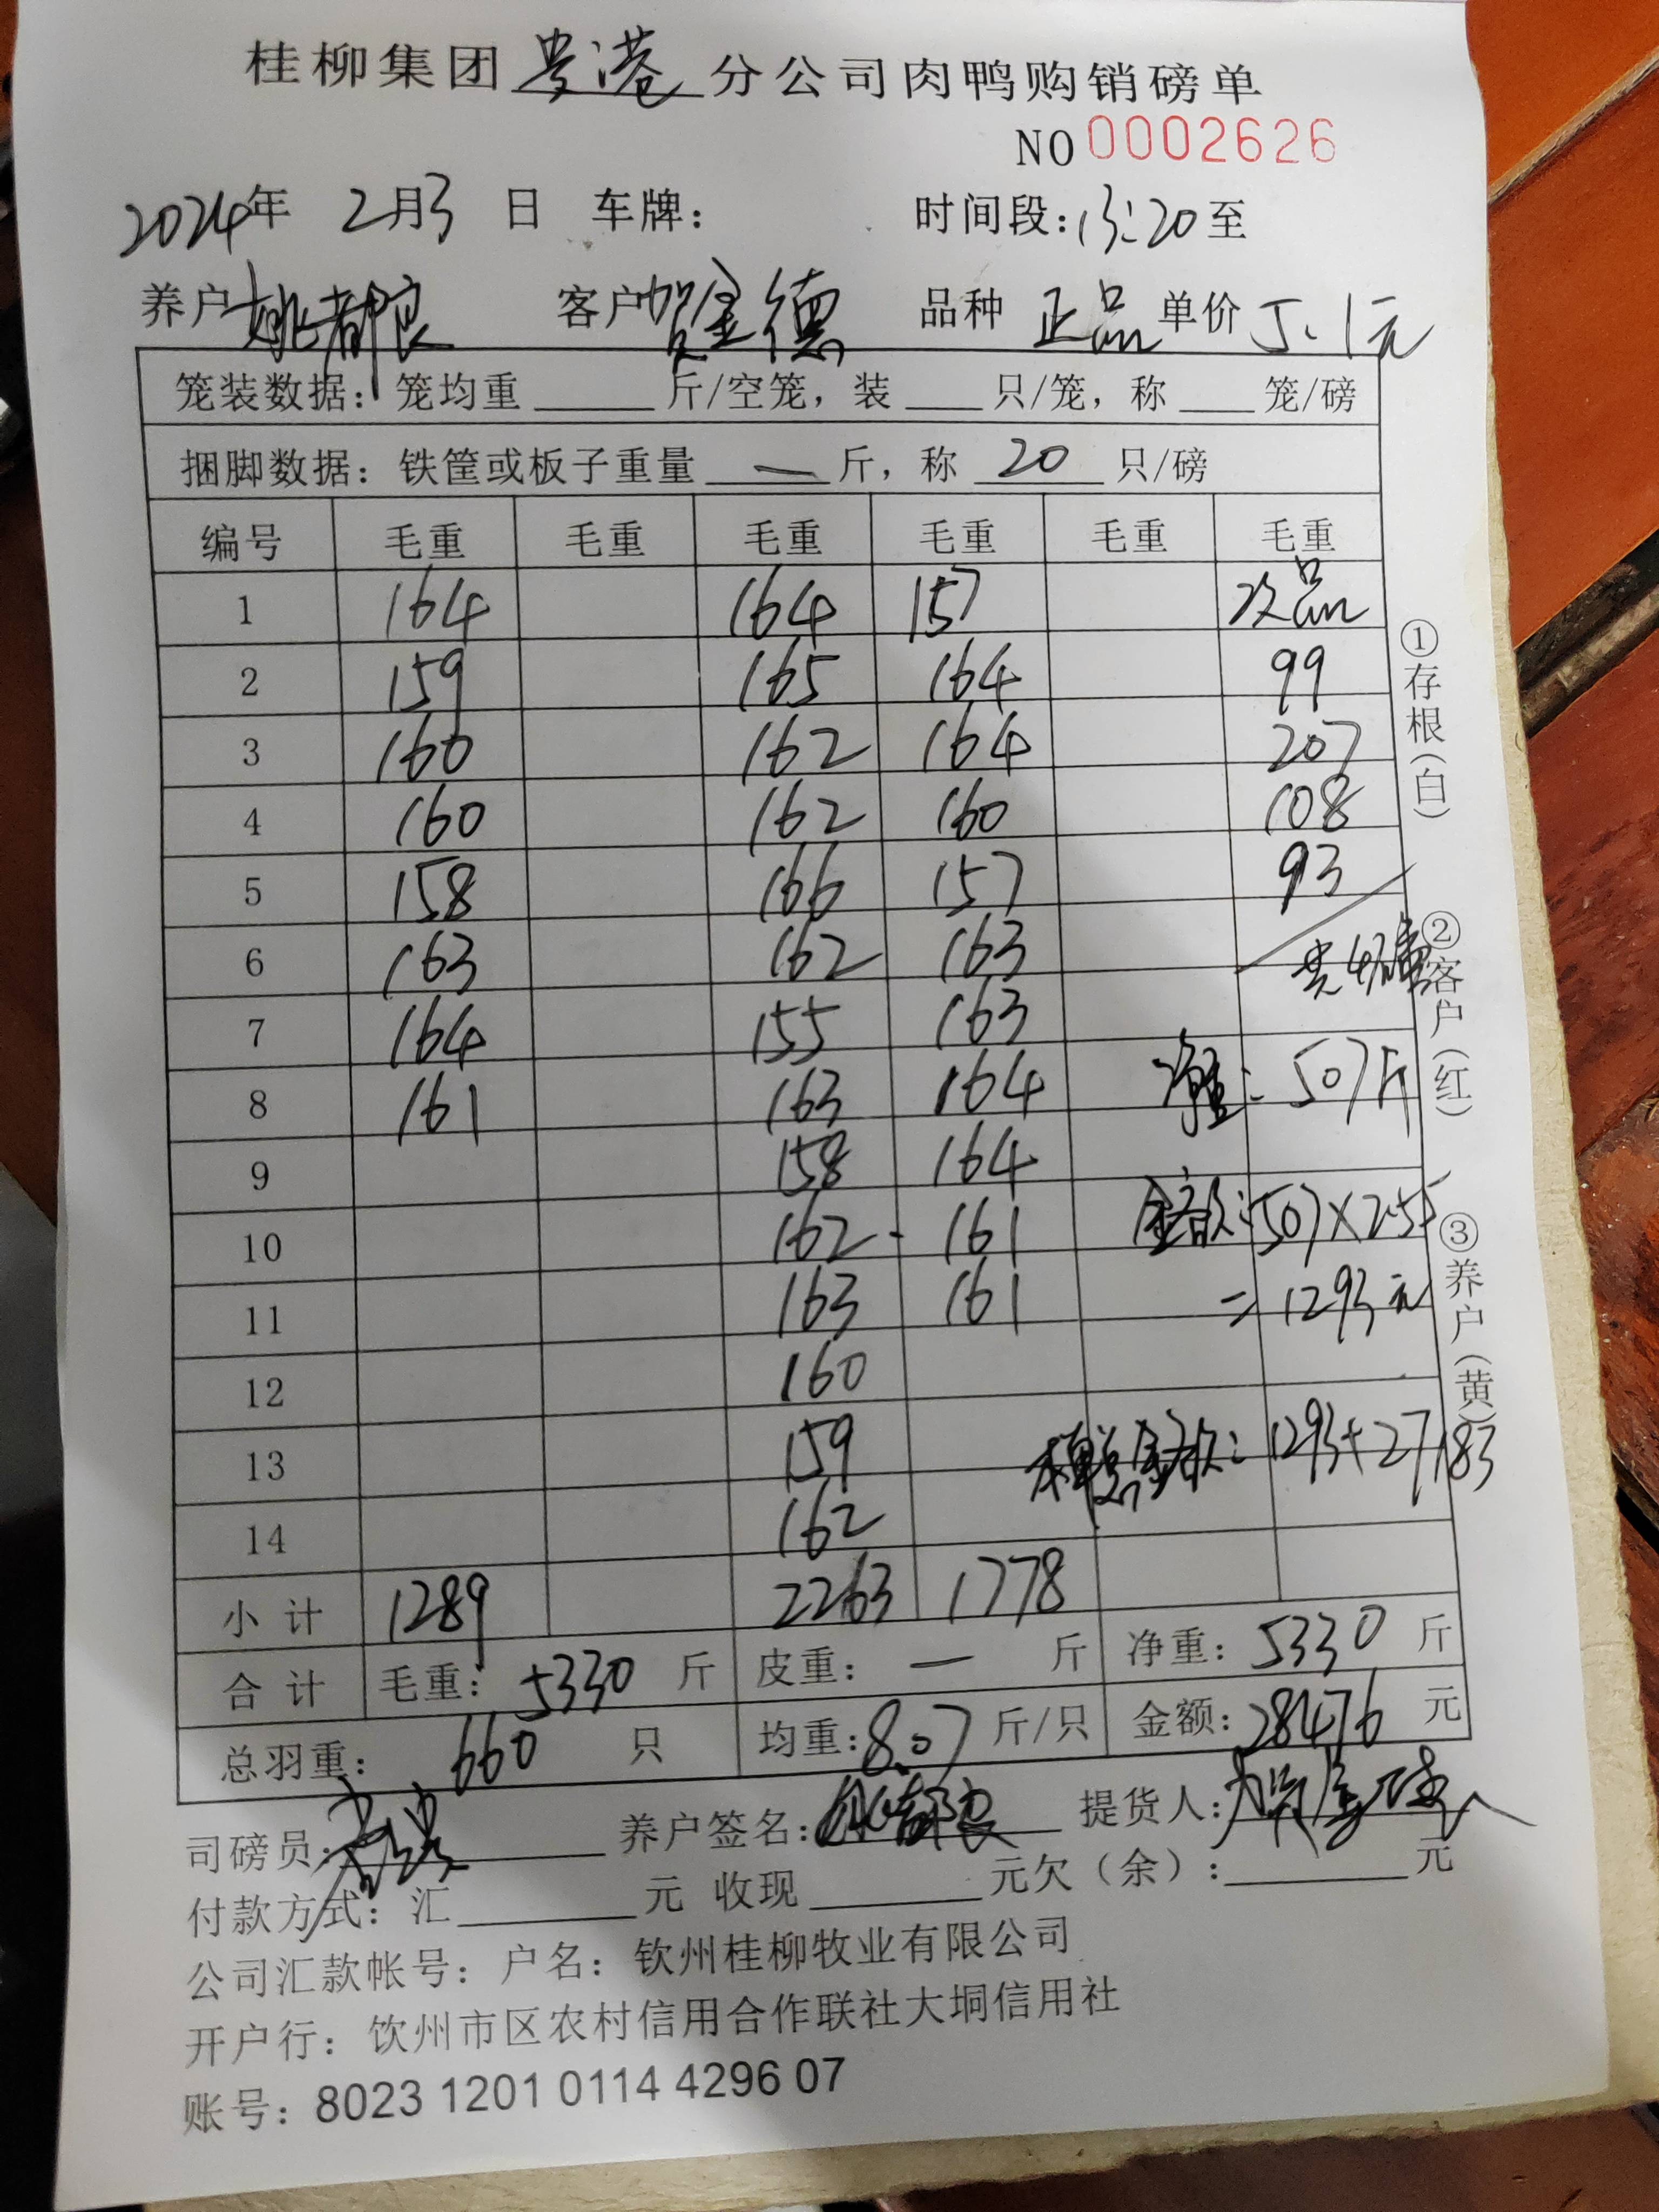 桂柳集团贵港分公司肉鸭购销磅单
NO 0002626
2024年 2月3 日 车牌: 时间段:13:20至
养户 姚都良 客户 贺金德 品种 正品 单价 5.1元
笼装数据: 笼均重 斤/空笼, 装 只/笼, 称 笼/磅
捆脚数据: 铁筐或板子重量 — 斤, 称 20 只/磅
编号 毛重 毛重 毛重 毛重 毛重 毛重
1 164 164 157 次品
2 159 165 164 99
3 160 162 164 207
4 160 162 160 108
5 158 166 157 93
6 163 162 163
7 164 155 163
8 161 163 164 净重: 507斤
9 158 164
10 162 161 金额:507×2.55
11 163 161 =1293元
12 160
13 159 本单总金额: 1293+27183
14 162
小计 1289 2263 1778
合计 毛重: 5330 斤 皮重: — 斤 净重: 5330 斤
总羽重: 660 只 均重:8.07 斤/只 金额:28476 元
司磅员: 养户签名: 姚都良 提货人: 贺金德
付款方式: 汇 元 收现 元欠(余): 元
公司汇款帐号: 户名: 钦州桂柳牧业有限公司
开户行: 钦州市区农村信用合作联社大垌信用社
账号: 8023 1201 0114 4296 07
①存根(白)
②客户(红)
③养户(黄)